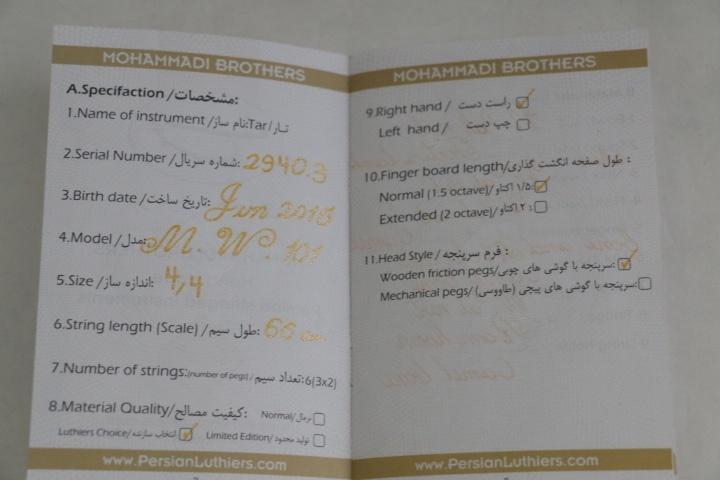 MOHAMMADI BROTHERS
A.Specifaction/مشخصات:
1.Name of instrument/نام ساز:Tar/تار
2.Serial Number/شماره سریال: 2940.3
3.Birth date/تاریخ ساخت: Jun 2015
4.Model/مدل: M. W. 101
5.Size/اندازه ساز: 4,4
6.String length (Scale)/طول سیم: 66 cm
7.Number of strings:(number of pegs)/تعداد سیم:6(3x2)
8.Material Quality/کیفیت مصالح: Normal/نرمال
Luthiers Choice/انتخاب سازنده Limited Edition/تولید محدود
www.PersianLuthiers.com
MOHAMMADI BROTHERS
9.Right hand/ راست دست
Left hand/ چپ دست
10.Finger board length/طول صفحه انگشت گذاری :
Normal (1.5 octave)/۱/۵ اکتاو:
Extended (2 octave)/۲ اکتاو :
11.Head Style/ فرم سرپنجه :
Wooden friction pegs/سرپنجه با گوشی های چوبی:
Mechanical pegs/سرپنجه با گوشی های پیچی (طاووسی):
www.PersianLuthiers.com